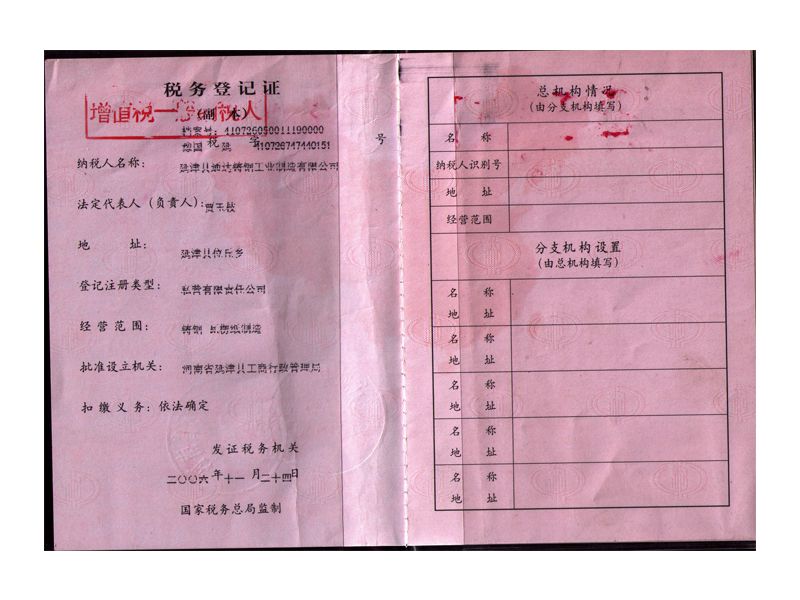 税务登记证
增值税一般纳税人
（副本）
档案号：410726050011190000
豫国 税 延 字 410726747440151 号
纳税人名称：延津县通达铸钢工业制造有限公司
法定代表人（负责人）：贾玉枝
地 址：延津县位丘乡
登记注册类型：私营有限责任公司
经营范围：铸钢
批准设立机关：河南省延津县工商行政管理局
扣缴义务：依法确定
发证税务机关
二〇〇六年十一月二十四日
国家税务总局监制
总机构情况
（由分支机构填写）
名 称
纳税人识别号
地 址
经营范围
分支机构设置
（由总机构填写）
名 称
地 址
名 称
地 址
名 称
地 址
名 称
地 址
名 称
地 址